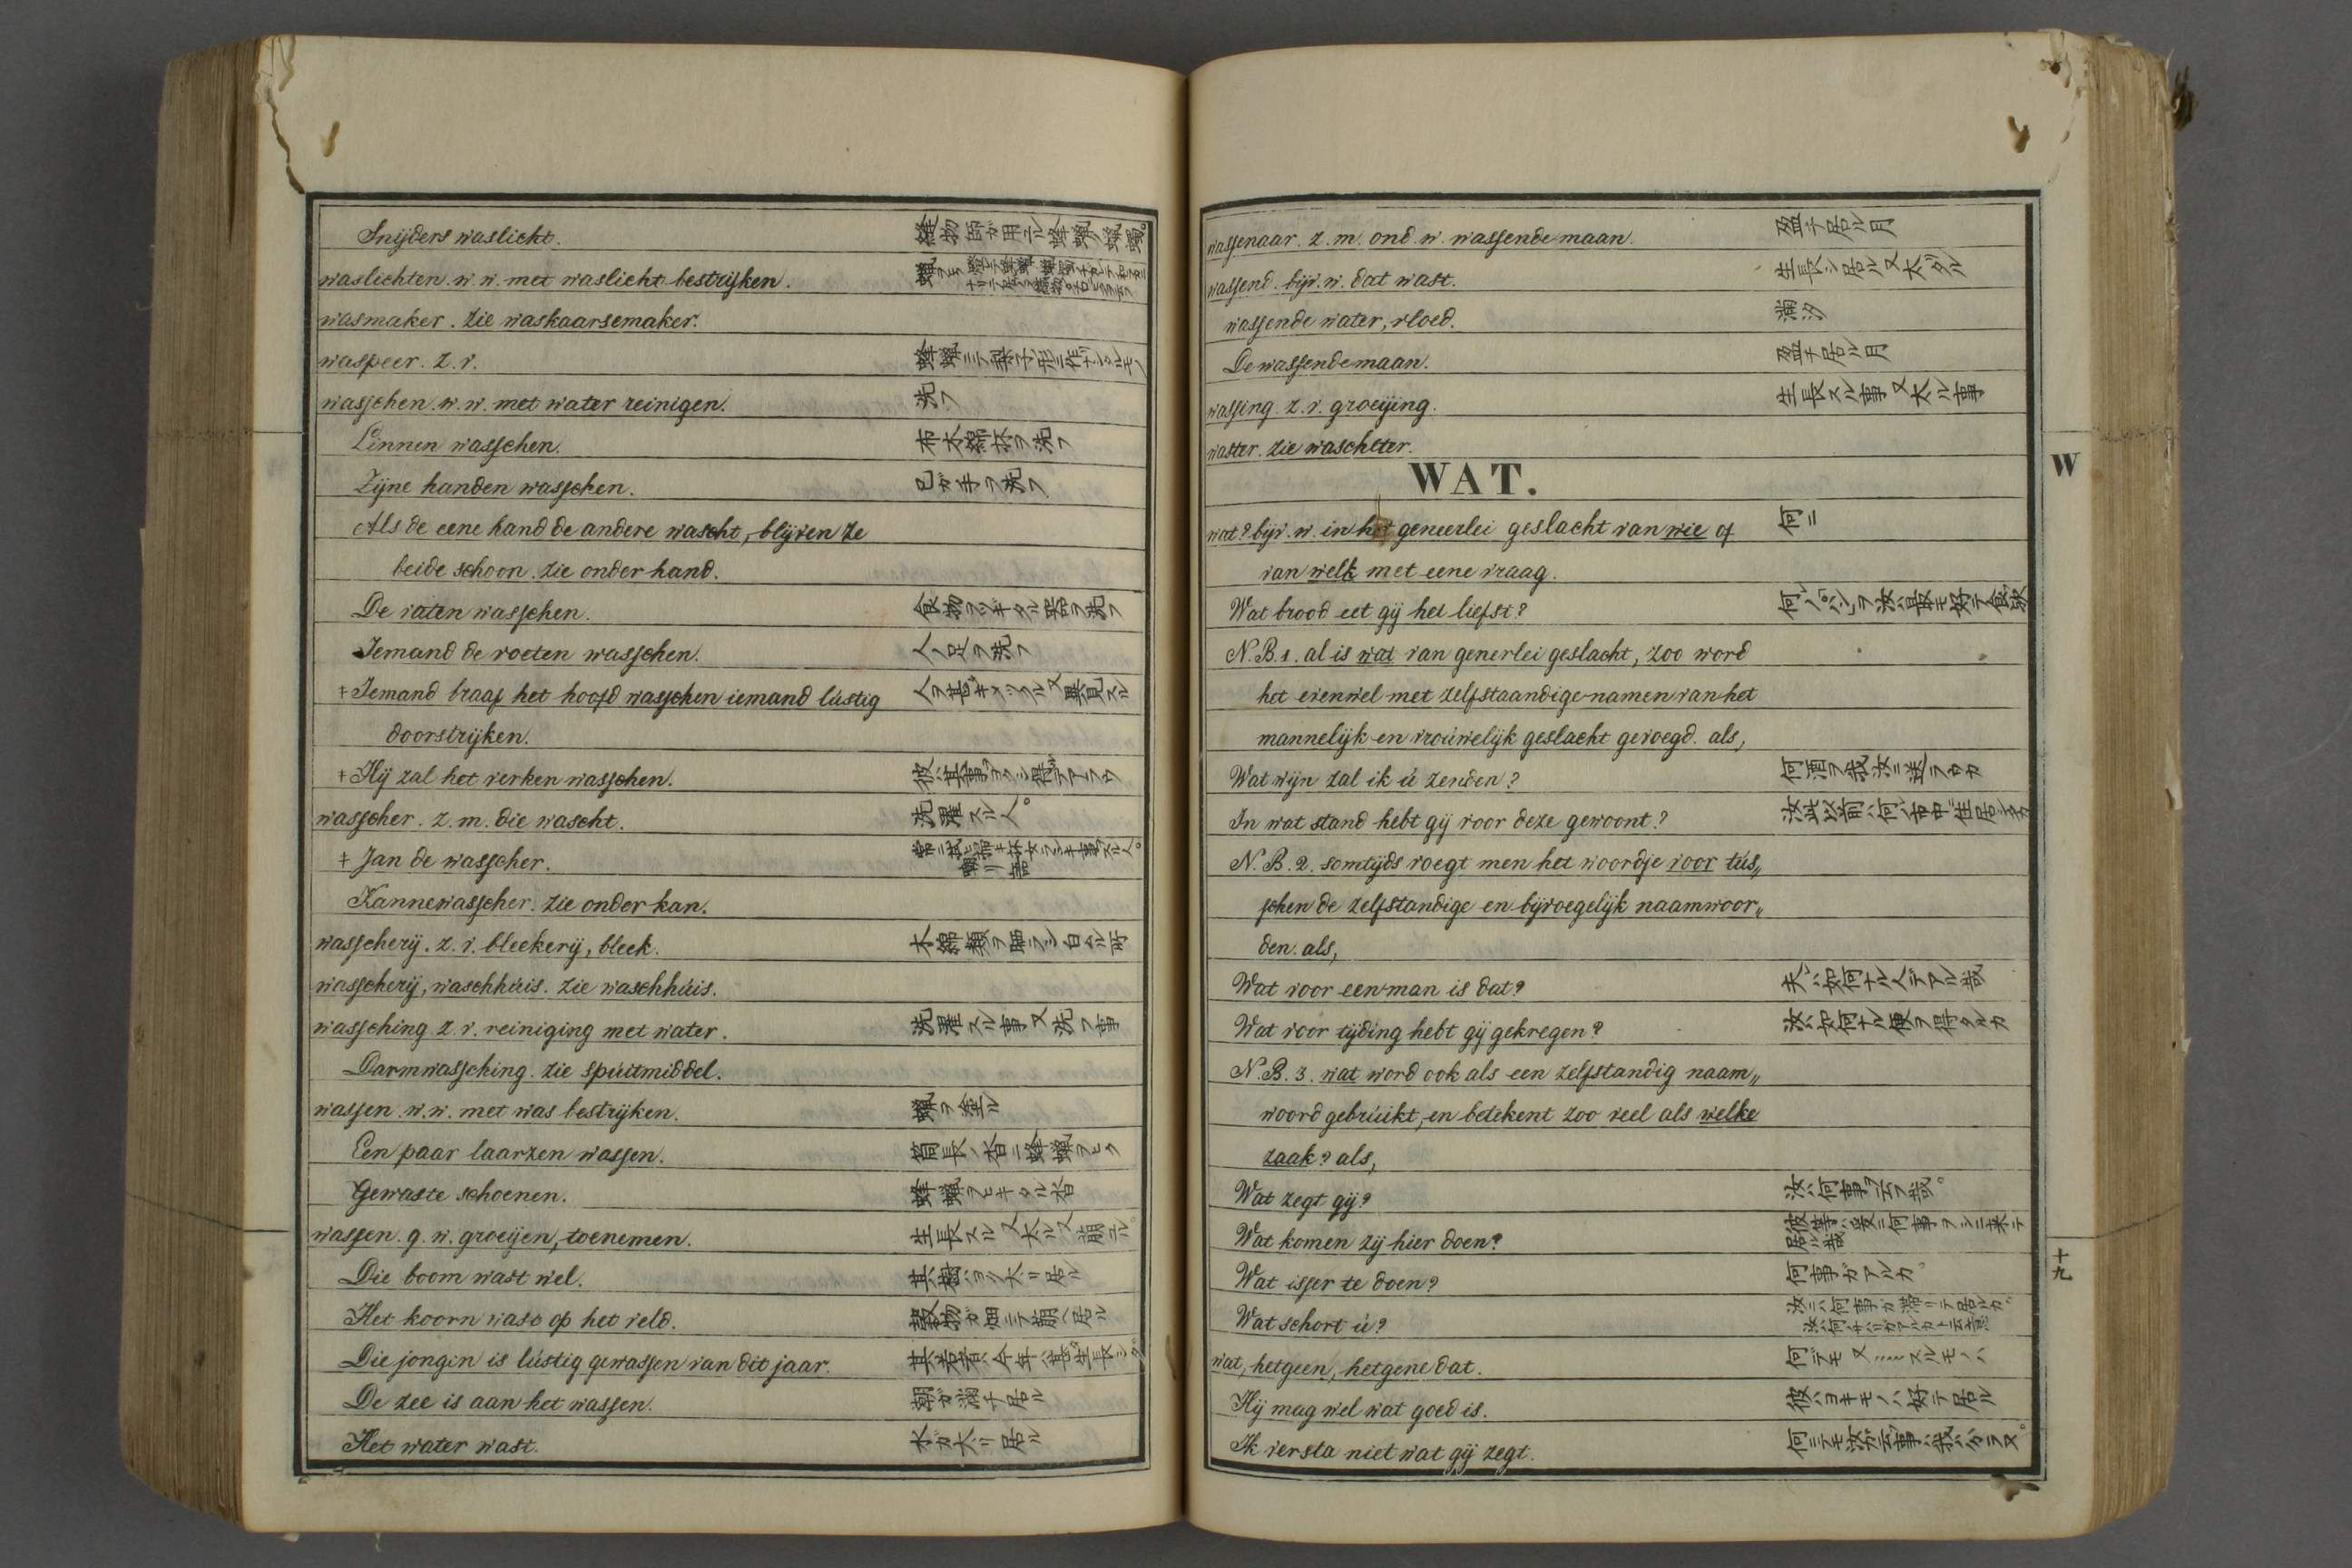 Snijders waslicht. 縫物師ガ用ユル蜂蠟ノ蠟燭。
waslichten. w. w. met waslicht bestrijken.
wasmaker. zie waskaarsemaker.
waspeer. z. v. 蜂蠟ニテ梨子ノ形ニ作
wasschen. w. w. met water reinigen. 洗フ
Linnen wasschen. 布木綿杯ヲ洗フ
Zijne handen wasschen. 己ガ手ヲ洗フ
Als de eene hand de andere wascht, blijven ze
beide schoon. zie onder hand.
De vaten wasschen. 食物ヲ 器ヲ洗フ
Iemand de voeten wasschen. 人ノ足ヲ洗フ
‡ Iemand braaf het hoofd wasschen iemand lústig 人ヲ甚ダ 又異見スル
doorstrijken.
‡ Hij zal het verken wasschen. 彼ハ其事ヲ
wasscher. z. m. die wascht. 洗濯スル人。
‡ Jan de wasscher.
Kannewasscher. zie onder kan.
wasscherij. z. v. bleekerij, bleek. 木綿類ヲ晒ラシ白クスル所
wasscherij, waschhúis. zie waschhúis.
wassching z. v. reiniging met water. 洗濯スル事又洗フ事
Darmwassching. zie spúitmiddel.
wassen. w. w. met was bestrijken. 蠟ヲ塗ル
Een paar laarzen wassen. 筒長ノ沓ニ蜂蠟ヲヒク
Gewaste schoenen. 蜂蠟ヲヒキタル沓
wassen. g. w. groeijen, toenemen. 生長スル又太ル又萠ユル。
Die boom wast wel. 其樹ハヨク太リ居ル
Het koorn wast op het veld. 穀物ガ畑ニテ萠ヘ居ル
Die jongin is lústig gewassen van dit jaar. 其若者ハ今年ハ甚ダ生長シタ。
De zee is aan het wassen. 潮ガ満チ居ル
Het water wast. 水ガ太リ居ル
wassenaar. z. m. ond. w. wassende maan. 盈チ居ル月
wassend. bijv. w. dat wast. 生長シ居ル又太リタル
wassende water, vloed. 満汐
De wassende maan. 盈チ居ル月
wassing. z. v. groeijing. 生長スル事又太ル事
waster. zie waschster.
WAT.
wat? bijv. w. in het geneerlei geslacht van wie of 何ニ
van welk met eene vraag.
Wat brood eet gij het liefst? 何ノパンヲ汝ハ最モ好テ食
N. B. 1. al is wat van generlei geslacht, zoo word
het evenwel met zelfstaandige namen van het
mannelijk en vroúwelijk geslacht gevoegd. als,
Wat wijn zal ik ú zenden? 何酒ヲ我汝ニ送ラウカ
In wat stand hebt gij voor deze gewoont? 汝此以前ハ何ノ市中ニ住居シタカ
N. B. 2. somtijds voegt men het woordje voor tús„
schen de zelfstandige en bijvoegelijk naamwoor„
den. als,
Wat voor een man is dat? 夫ハ如何ナル人デアル哉
Wat voor tijding hebt gij gekregen? 汝ハ如何ナル便ヲ得タルカ
N. B. 3. wat word ook als een zelfstandig naam„
woord gebrúikt, en betekent zoo veel als welke
zaak? als,
Wat zegt gij? 汝ハ何事ヲ云フ哉。
Wat komen zij hier doen? 彼等ハ爰ニ何事ヲシニ来テ居ル哉
Wat isser te doen? 何事ガアルカ。
Wat schort ú? 汝ニハ何事ガ滞リテ居ルカ。
wat, hetgeen, hetgene dat. 何デモ又……スルモノハ
Hij mag wel wat goed is. 彼ハヨキモノハ好テ居ル
Ik versta niet wat gij zegt. 何ニテモ汝ガ云事ハ我ハ分ラヌ。
W
十九